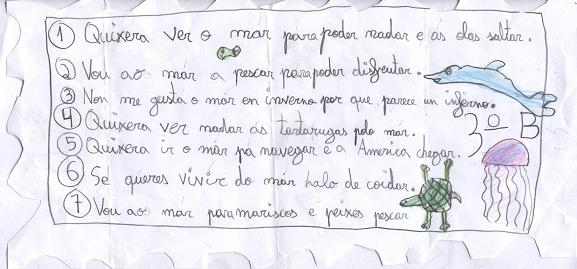 1 Quixera ver o mar para poder nadar e ás olas saltar.
2 Vou ao mar a pescar para poder disfrutar.
3 Non me gusta o mar en inverno por que parece un inferno.
4 Quixera ver nadar ás tartarugas polo mar.
5 Quixera ir o mar pa navegar e a America chegar.
6 Se queres vivir do mar halo de coidar.
7 Vou ao mar para mariscos e peixes pescar
3º B